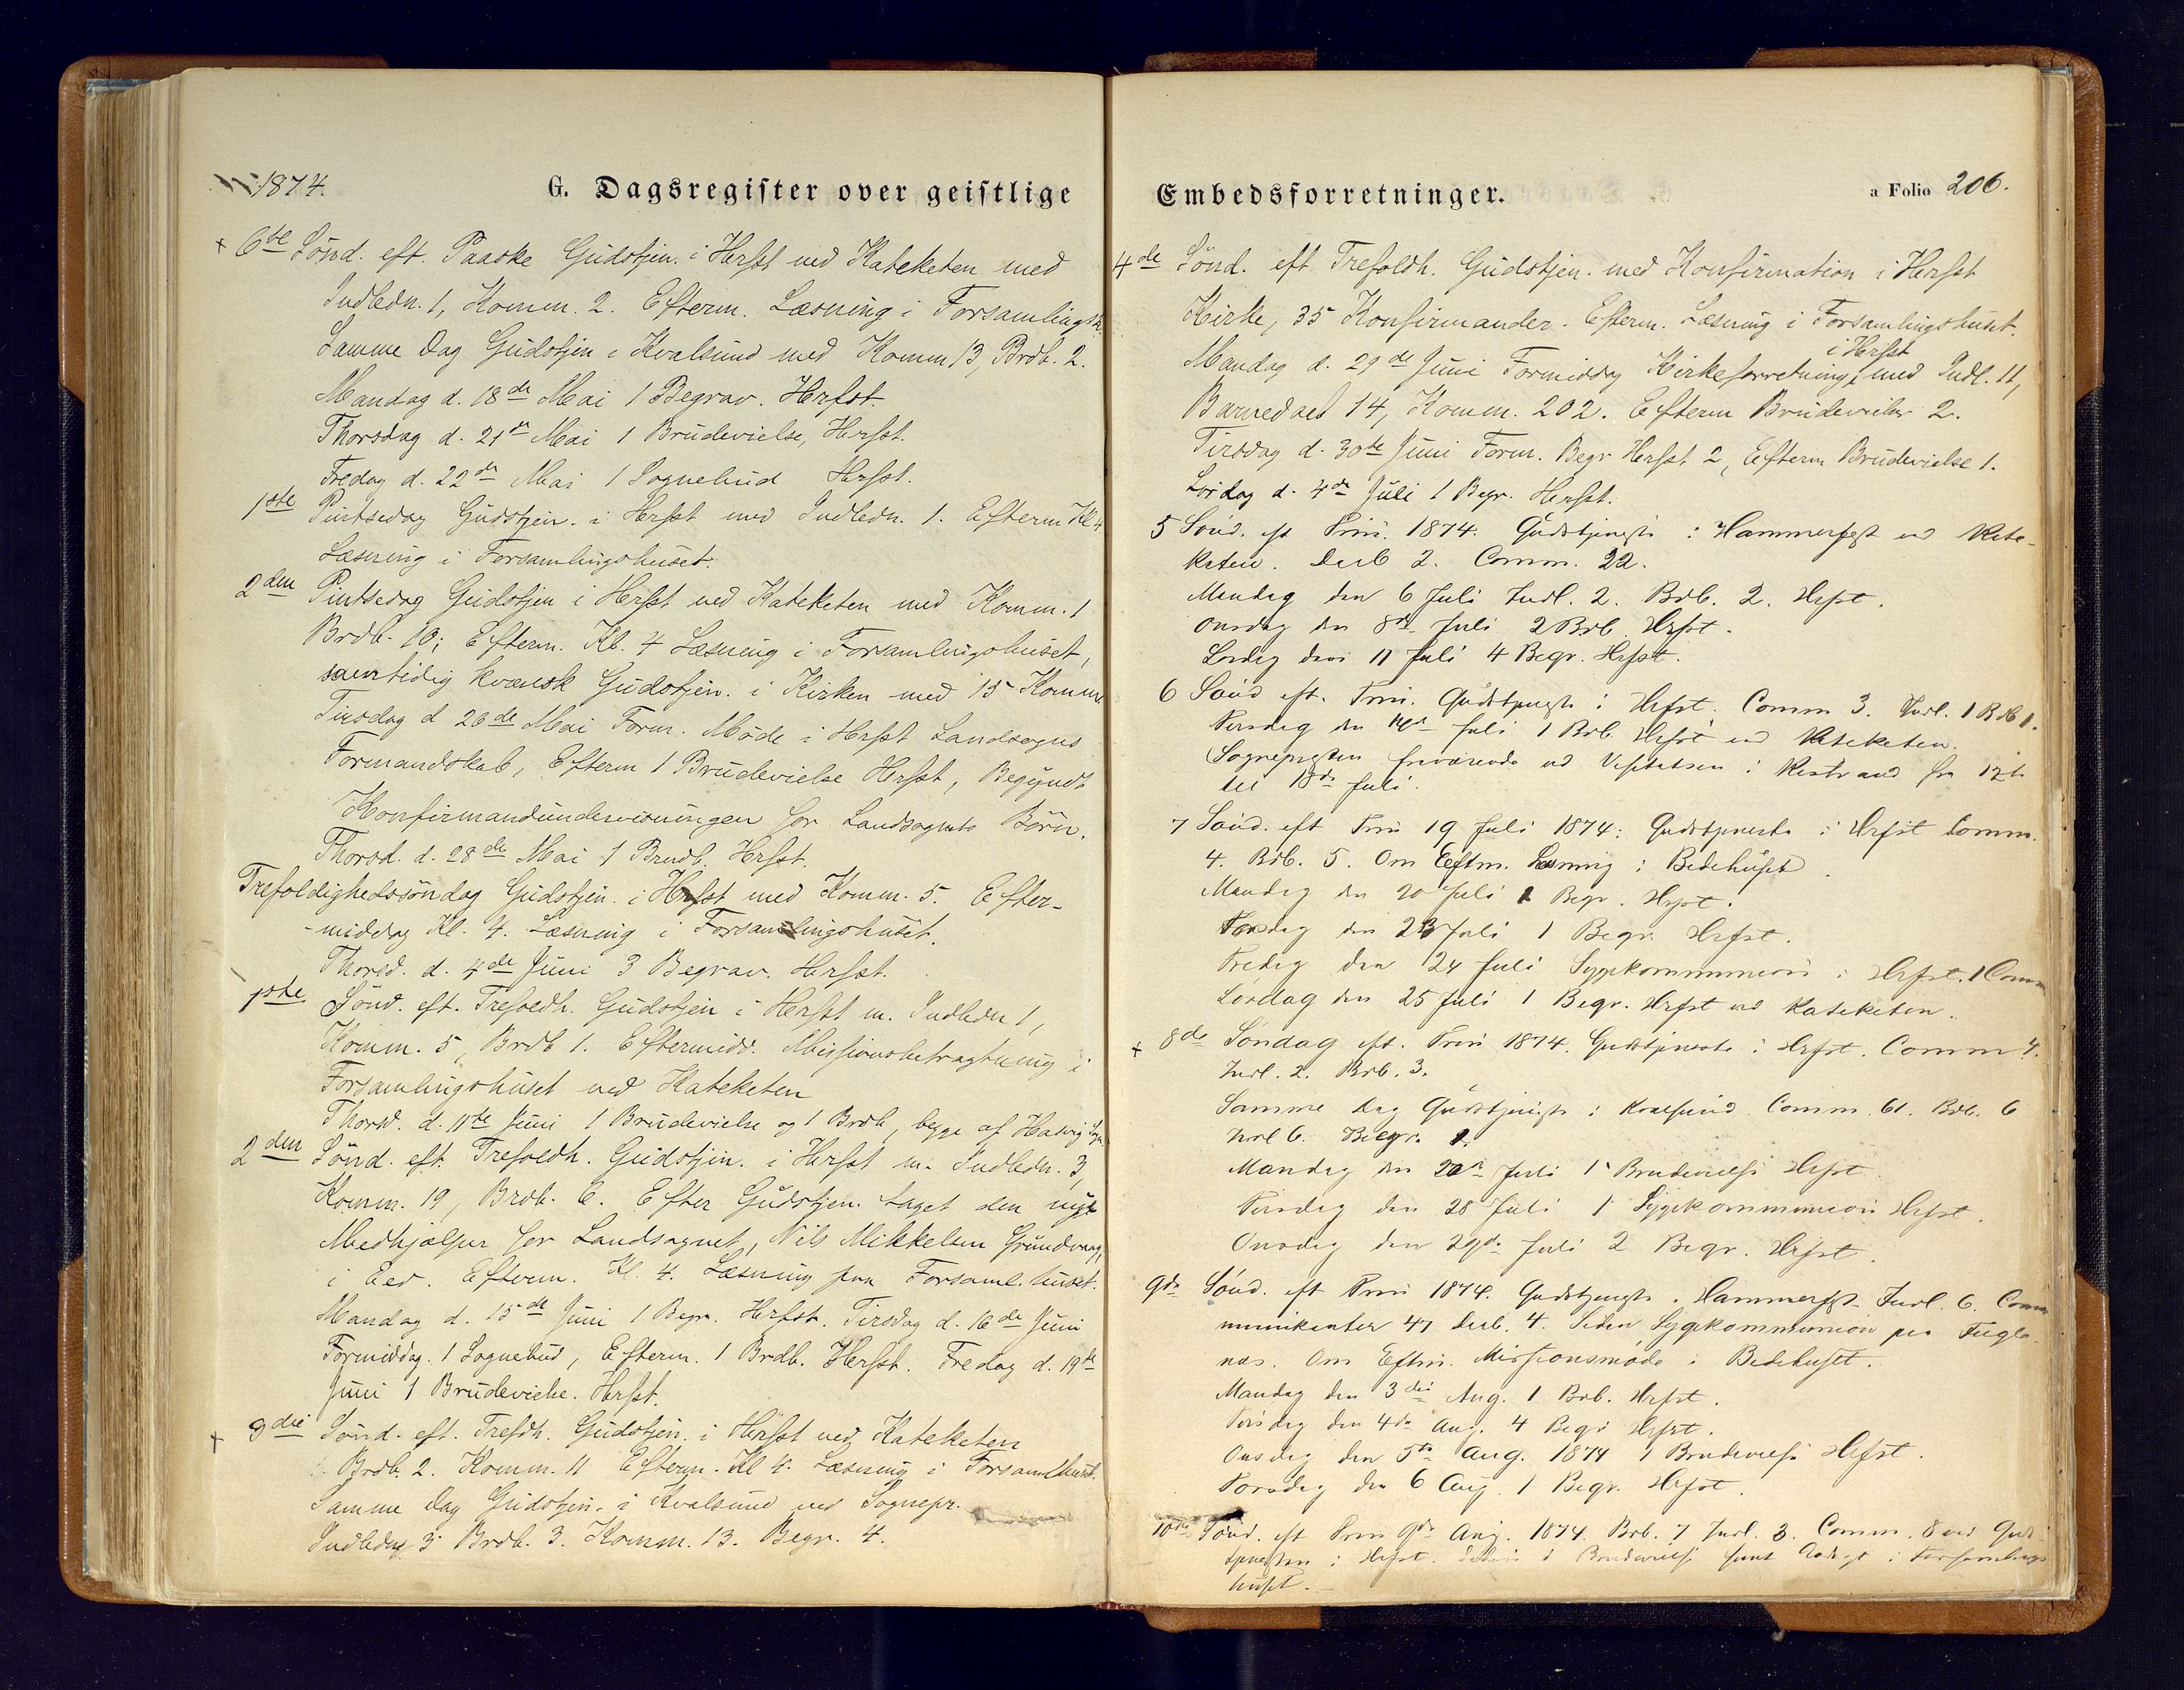 1874.
G. Dagsregister over geistlige
+ 6te Sönd. eft. Paaske Gudstjen. i Hrfst ved Kateketen med
Indledn. 1, Komm. 2. Efterm. Læsning i Forsamlingsh.
Samme Dag Gudstjen i Kvalsund med Komm 13, Brdb. 2.
Mandag d. 18de Mai 1 Begrav. Hrfst.
Thorsdag d. 21de Mai 1 Brudevielse, Hrfst.
Fredag d. 22de Mai 1 Sognebud Hrfst.
1ste Pintsedag Gudstjen. i Hrfst med Indledn. 1. Efterm Kl 4
Læsning i Forsamlingshuset.
2den Pintsedag Gudstjen i Hrfst ved Kateketen med Komm. 1
Brdb. 10; Efterm. Kl. 4 Læsning i Forsamlingshuset,
samtidig kvænsk Gudstjen. i Kirken med 15 Komm.
Tirsdag d 26de Mai Form. Möde i Hrfst Landsogns
Formandskab, Efterm 1 Brudevielse Hrfst, Begyndt
Konfirmandundervisningen for Landsognets Börn.
Thorsd. d. 28de Mai 1 Brudb. Hrfst.
Trefoldighedssöndag Gudstjen. i Hrfst med Komm. 5. Efter-
-middag Kl. 4. Læsning i Forsamlingshuset.
Thorsd. d. 4de Juni 3 Begrav. Hrfst.
1ste Sönd. eft. Trefoldh. Gudstjen i Hrfst m. Indledn 1,
Komm. 5, Brdb 1. Eftermidd. Missionsbetragtning i
Forsamlingshuset ved Kateketen
Thorsd. d. 11te Juni 1 Brudevielse og 1 Brdb, begge af Hasvig Sogn
2den Sönd. eft. Trefoldh. Gudstjen. i Hrfst m. Indledn. 3,
Komm. 19, Brdb. 6. Efter Gudstjen. taget den nye
Medhjælper for Landsognet, Nils Mikkelsen Grundvaag,
i Eed. Efterm. Kl. 4. Læsning paa Forsaml.huset.
Mandag d. 15de Juni 1 Begr. Hrfst. Tirsdag d. 16de Juni
Formiddag. 1 Sognebud, Efterm. 1 Brdb. Hrfst. Fredag d. 19de
Juni 1 Brudevielse. Hrfst.
+ 3die Sönd. eft. Trefdh. Gudstjen. i Hrfst ved Kateketen
Brdb. 2. Komm. 11 Efterm. Kl 4. Læsning i Forsamlhuset.
Samme Dag Gudstjen. i Kvalsund ved Sognepr.
Indledng 3 Brdb. 3. Komm. 13. Begr. 4.
Embedsforretninger.
a Folio 206.
4de Sönd. eft Trefoldh. Gudstjen. med Konfirmation i Hrfst
Kirke, 35 Konfirmander. Efterm. Læsning i Forsamlingshuset.
i Hrfst
Mandag d. 29de Juni Formiddag Kirkeforretning, med Indl. 11,
Barnedaab 14, Komm. 202. Efterm Brudevielser 2.
Tirsdag d. 30te Juni Form. Begr Hrfst 2, Efterm Brudevielse 1.
Lördag d. 4de Juli 1 Begr. Hrfst.
5 Sönd. eft Trin. 1874. Gudstjeneste i Hammerfest ved Kate-
keten. Daab 2. Comm. 22.
Mandag den 6 Juli Indl. 2. Brdb. 2. Hrfst.
Onsdag den 8de Juli 2 Brdb. Hrfst.
Lordag den 11 Juli 4 Begr. Hrfst.
6 Sönd eft. Trin. Gudstjeneste i Hrfst. Comm 3. Indl. 1 Bdb 1.
Tirsdag den 14de Juli 1 Brdb. Hrfst ved Kateketen.
Sognepresten fraværende ved Visitatsen i Kistrand fra 12te
til 18de Juli.
7 Sönd. eft Trin 19 Juli 1874: Gudstjeneste i Hrfst Comm.
4. Brdb. 5. Om Eftm. Læsning i Bedehuset.
Mandag den 20 Juli 1 Begr. Hrfst.
Torsdag den 23 Juli 1 Begr. Hrfst.
Fredag den 24 Juli Sygekommunion i Hrfst. 1 Comm
Lördag den 25 Juli 1 Begr. Hrfst ved Kateketen.
+ 8de Söndag eft. Trin 1874. Gudstjeneste i Hrfst. Comm 4.
Indl. 2. Brdb. 3.
Samme Dag Gudstjeneste i Kvalsund Comm. 61. Bdb. 6
Indl 6. Begr. 1.
Mandag den Juli 1 Brudevielse Hrfst
Tirsdag den 28 Juli 1 Sygekommunion Hrfst.
Onsdag den 29de Juli 2 Begr. Hrfst.
9de Sönd. eft Trin 1874. Gudstjeneste i Hammerfest Indl. 6. Com
munikanter 47 Daab. 4. Siden Sygekommunion paa Fugle-
næs. Om Eftm. Missionsmöde i Bedehuset.
Mandag den 3die Aug. 1 Brdb. Hrfst.
Tirsdag den 4de Aug. 4 Begr Hrfst.
Onsdag den 5te Aug. 1874 1 Brudevielse Hrfst.
Torsdag den 6 Aug. 1 Begr. Hrfst.
10de Sönd. eft Trin 9de Aug. 1874. Brdb. 7 Indl. 3. Comm. 8 ved Gud
tjenesten i Hrfst. 1 Brudevielse samt i Forsamlings
huset.